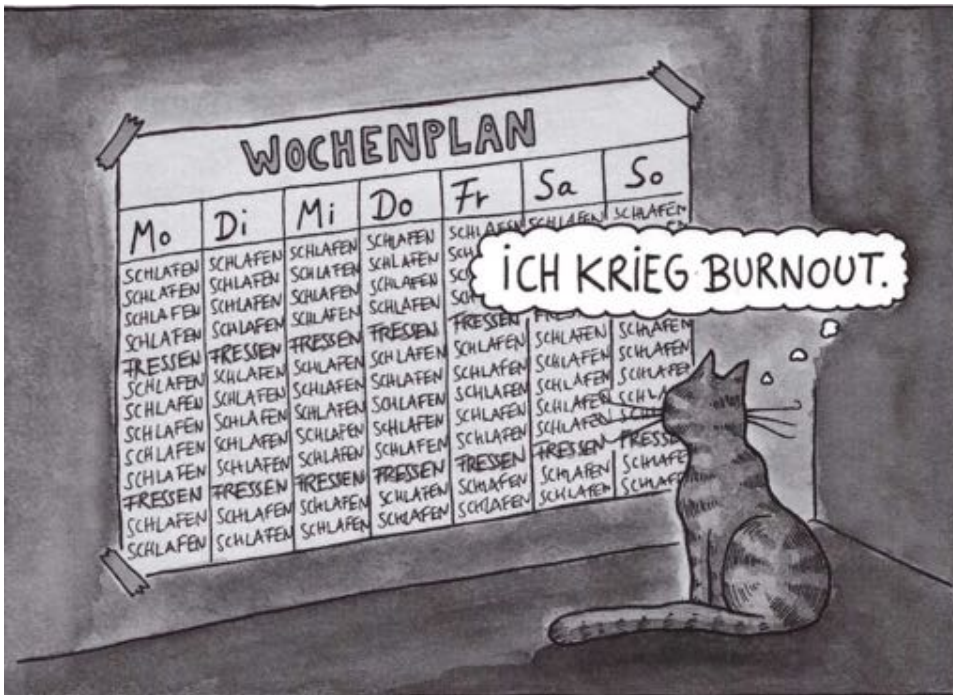 WOCHENPLAN
Mo Di Mi Do Fr Sa So
SCHLAFEN SCHLAFEN SCHLAFEN SCHLAFEN SCHLAFEN SCHLAFEN SCHLAFEN
SCHLAFEN SCHLAFEN SCHLAFEN SCHLAFEN
SCHLAFEN SCHLAFEN SCHLAFEN SCHLAFEN
SCHLAFEN SCHLAFEN SCHLAFEN SCHLAFEN
FRESSEN FRESSEN FRESSEN FRESSEN FRESSEN
SCHLAFEN SCHLAFEN SCHLAFEN SCHLAFEN SCHLAFEN SCHLAFEN SCHLAFEN
SCHLAFEN SCHLAFEN SCHLAFEN SCHLAFEN SCHLAFEN SCHLAFEN SCHLAFEN
SCHLAFEN SCHLAFEN SCHLAFEN SCHLAFEN SCHLAFEN SCHLAFEN SCHLAFEN
SCHLAFEN SCHLAFEN SCHLAFEN SCHLAFEN SCHLAFEN SCHLAFEN
SCHLAFEN SCHLAFEN SCHLAFEN SCHLAFEN SCHLAFEN SCHLAFEN
FRESSEN FRESSEN FRESSEN FRESSEN FRESSEN FRESSEN
SCHLAFEN SCHLAFEN SCHLAFEN SCHLAFEN SCHLAFEN SCHLAFEN
SCHLAFEN SCHLAFEN SCHLAFEN SCHLAFEN SCHLAFEN SCHLAFEN
ICH KRIEG BURNOUT.